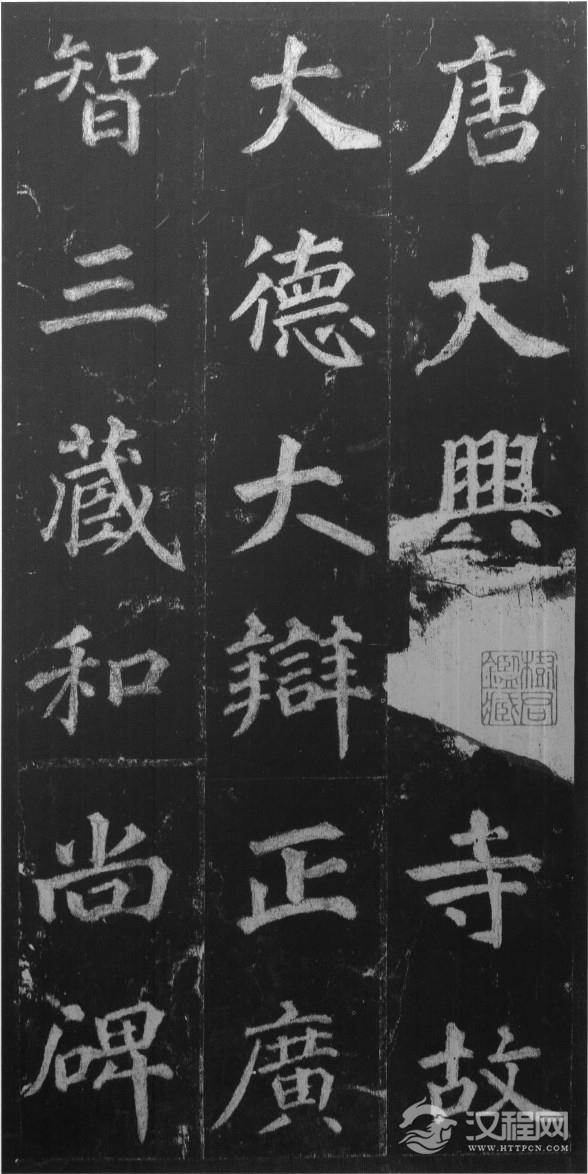 唐大興寺故
大德大辯正廣
智三藏和尚碑
樹君鑑藏
汉程网
WWW.HTTPCN.COM